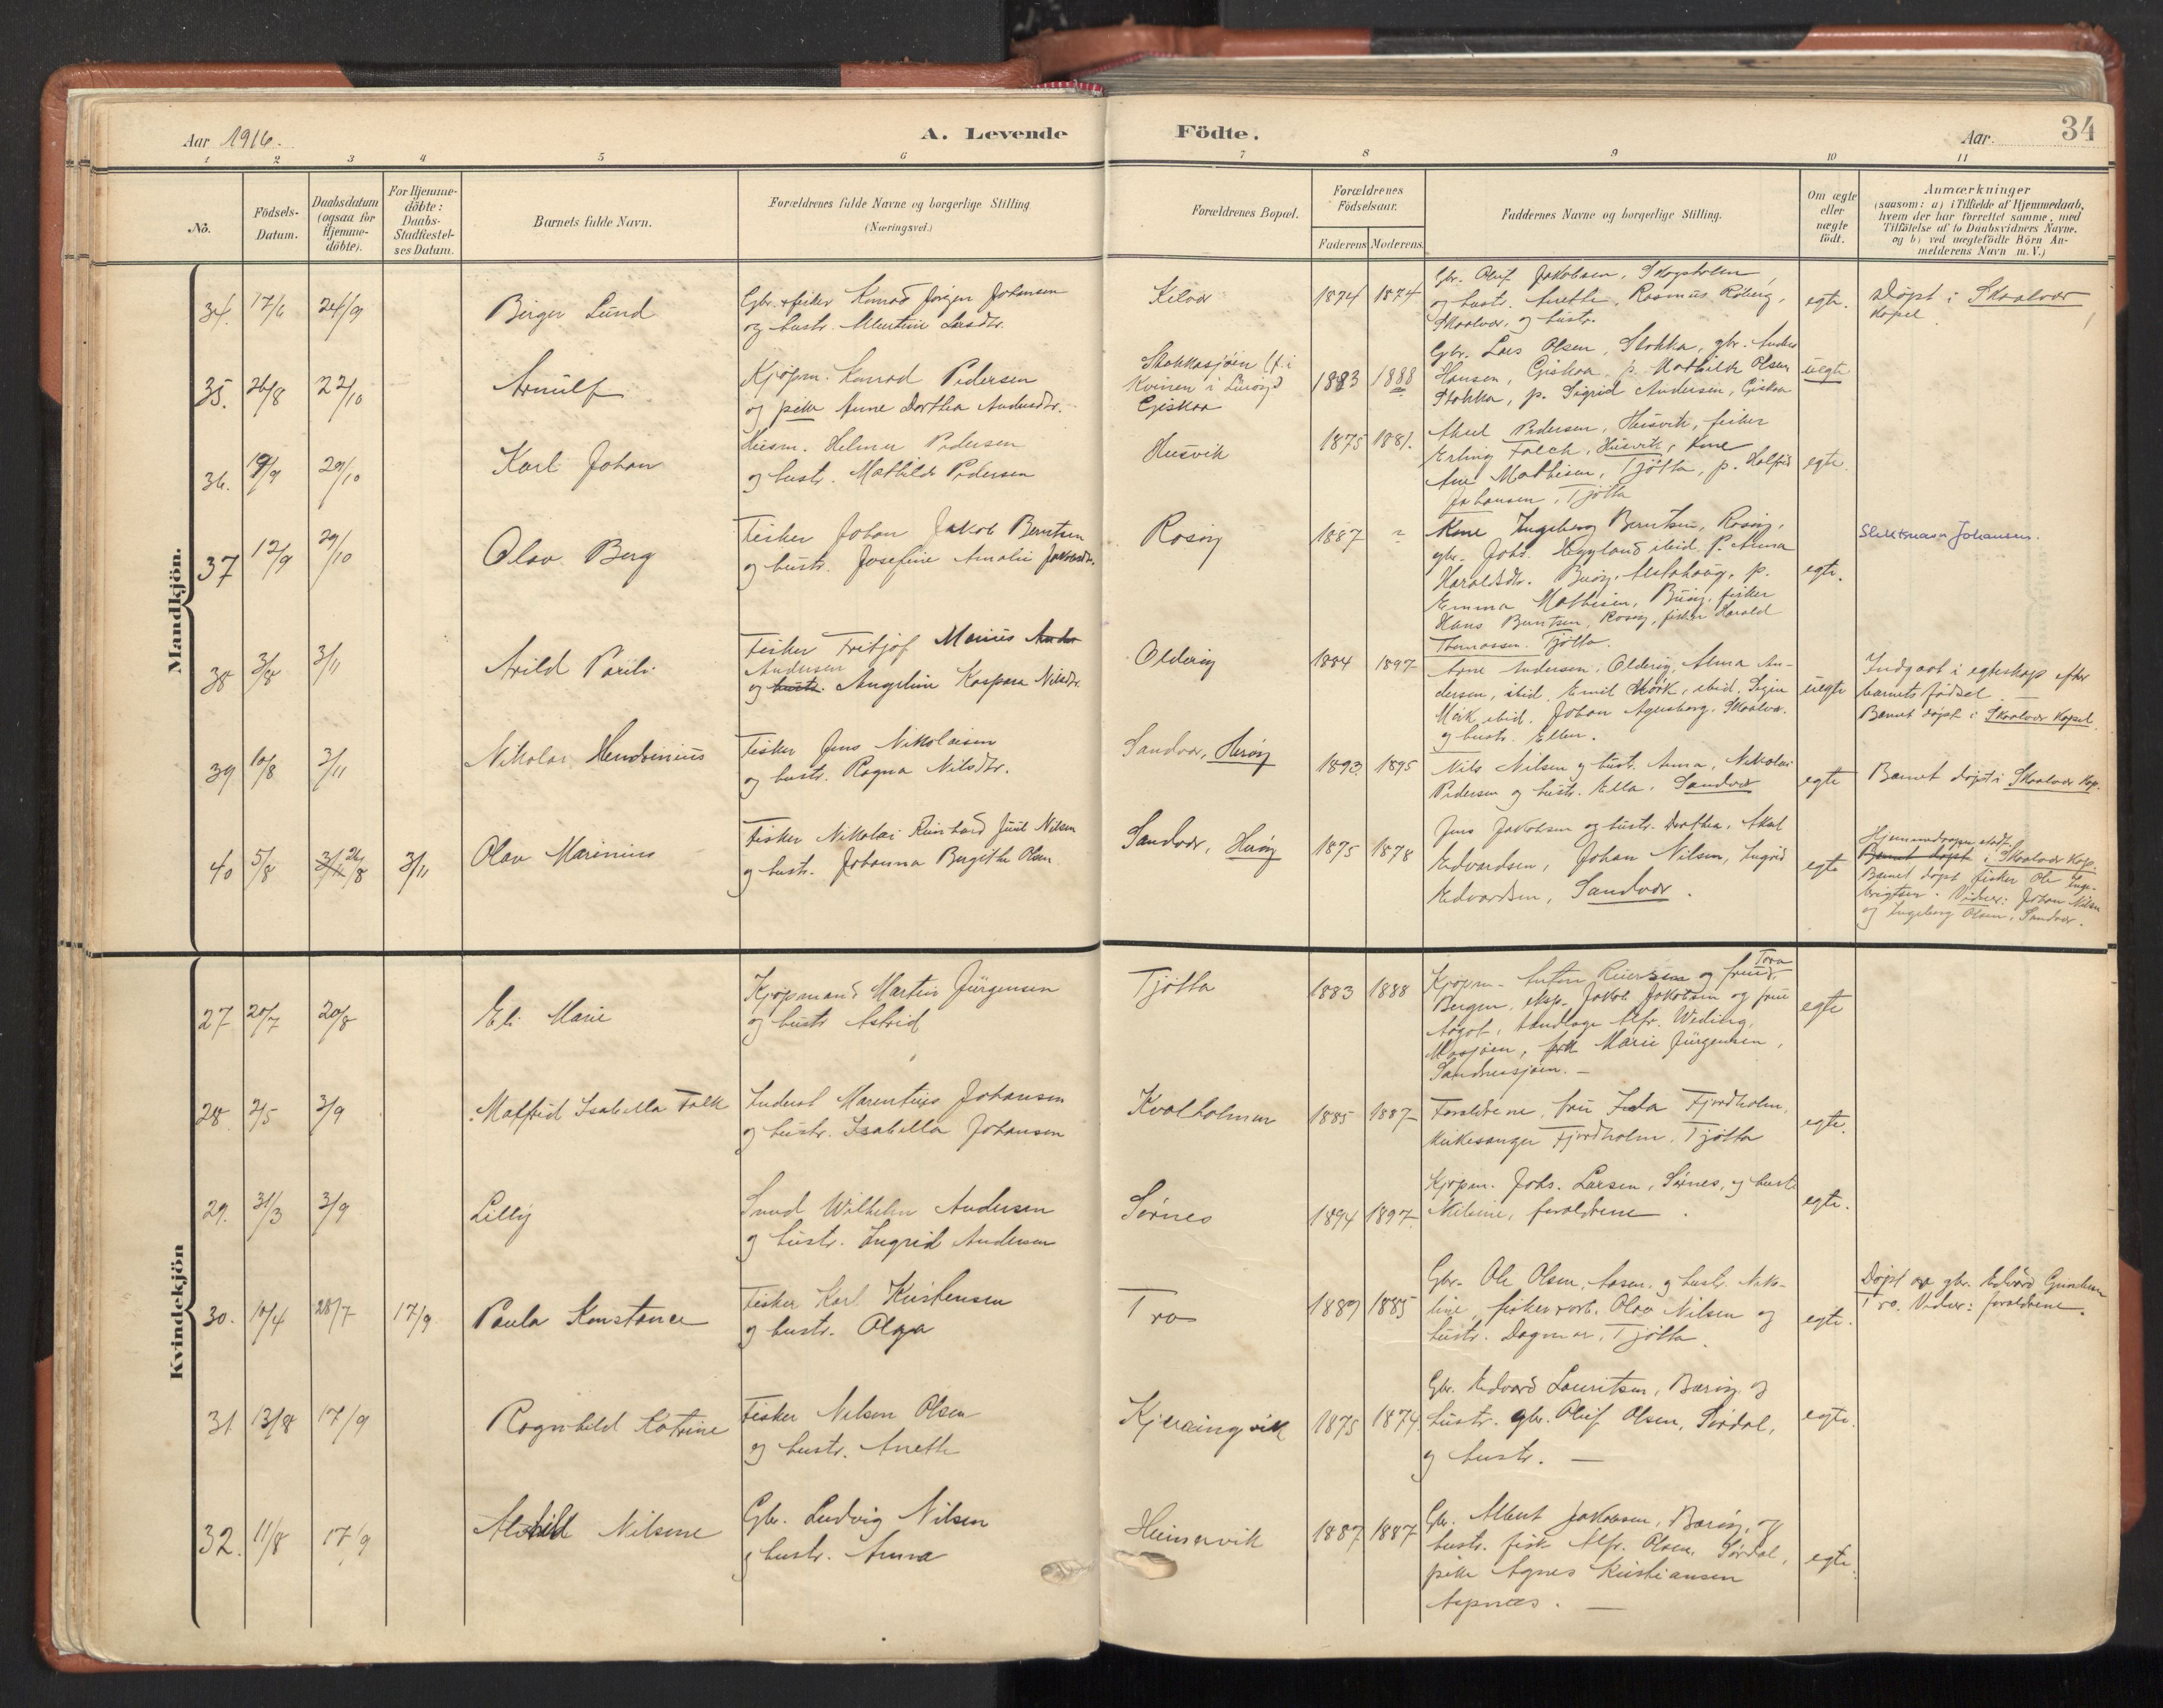 Aar 1916.
A. Levende Födte.
Aar.
34
1 2 3 4 5 6 7 8 9 10 11
No.
Födsels-Datum.
Daabsdatum (ogsaa for Hjemme-döbte).
For Hjemme-döbte: Daabs-Stadfestel-ses Datum.
Barnets fulde Navn.
Forældrenes fulde Navne og borgerlige Stilling
(Næringsvei.)
Forældrenes Bopæl.
Forældrenes Födselsaar.
Faderens Moderens.
Faddernes Navne og borgerlige Stilling.
Om ægte eller uægte födt.
Anmærkninger
(saasom: a) i Tilfælde af Hjemmedaab,
hvem der har forrettet samme, med
Tilföielse af to Daabsvidners Navne.
og b) ved uægtefödte Börn An-
melderens Navn m.V.)
Mandkjön.
34. 17/6 24/9
Birger Lund
Gbr. & fisker Konrad Jørgen Johansen
og hustr. Albertine Larsdtr.
Kilvær
1874 1874
Gbr. Oluf Jakobsen, Skogsholm,
og hustr. Anette, Rasmus Roberg,
Skaalvær, og hustr.
egte.
Døpt i Skaalvær
kapel
35. 26/8 22/10
Arnulf
Kjøpm. Konrad Pedersen
og pike Anne Dorthea Andersdtr.
Stokkasjøen (f. i
Kvinen i Lurøy)
Giskaa
1883 1888
Gbr. Lars Olsen, Stokka, gbr. Anders
Hansen, Giskaa, p. Mathilde Olsen
Stokka, p. Sigrid Andersen, Giskaa
uegte
36. 19/9 29/10
Karl Johan
Husm. Helmer Pedersen
og hustr. Mathilde Pedersen
Husvik
1875 1881.
Aksel Pedersen, Husvik, fisker
Erling Falch, Husvik, kone
Ane Mathisen, Tjøtta, p. Halfrid
Johansen, Tjøtta
egte.
37 12/9 29/10
Olav Berg
Fisker Johan Jakob Berntsen
og hustr. Josefine Amalie Jakobsdtr.
Rosøy
1887 -
Kone Ingeborg Berntsen, Rosøy,
gbr. Johs. Nygland ibid. P. Anna
Haraldsdtr. Buøy, Alstahaug, p.
Emma Mathisen, Buøy, fisker
Hans Berntsen, Rosøy, fisker Harald
Thomassen. Tjøtta.
egte.
Slektsnavn Johansen.
38 3/8 3/11
Arild Parili
Fisker Fritjof Marius Ander
Andersen
og hustr. Angeline Kaspara Nilsdtr.
Olderøy
1884 1897
Arne Andersen, Olderøy, Alma An-
dersen, ibid. Emil Mørk, ibid. Signe
Mørk ibid. Johan Agersborg, Skaalvær.
og hustr. Ellen.
uegte
Indgaat i egteskap efter
barnets fødsel.
Barnet døpt i Skaalvær kapel.
39 10/8 3/11
Nikolai Hendrinius
Fisker Jens Nikolaisen
og hustr. Ragna Nilsdtr.
Sandvær, Herøy
1893 1895
Nils Nilsen og hustr. Anna, Nikolai
Pedersen og hustr. Ella, Sandvær
egte
Barnet døpt i Skaalvær kap.
40 5/8 3/11 26/8 3/11
Olav Marinius
Fisker Nikolai Reinhard Juul Nilsen
og hustr. Johanna Bergithe Olsen
Sandvær, Herøy
1875 1878
Jens Jakobsen og hustr. Dorthea, Aksel
Edvardsen, Johan Nilsen, Ingrid
Edvardsen, Sandvær.
egte
Hjemmedaapen stadf.
Barnet døpt i Skaalvær Kap.
Barnet døpt fisker Ole Inge-
brigtsen. Vidner: Johan Nilsen
og Ingeborg Olsen, Sandvær.
Kvindekjön
27 20/7 20/8
Eli Marie
Kjøpmand Martin Jürgensen
og hustr Astrid
Tjøtta
1883 1888
Kjøpm. Anton Reiersen og frue Tora
Bergen, eksp. Jakob Jakobsen og frue
Aagot, tandlæge Alfr. Weding,
Mosjøen, frk Marie Jürgensen,
Sandnessjøen. -
egte
28. 2/5 3/9
Malfrid Isabella Falk
Inderst Marentius Johansen
og hustr. Isabella Johansen
Kvalholmen
1885 1887
Foreldrene, fru Inda Fjordholm,
kirkesanger Fjordholm, Tjøtta
egte.
29. 31/3 3/9
Lilly
Smed Wilhelm Andersen
og hustr. Ingrid Andersen
Sørnes
1894 1897
Kjøpm. Johs. Larsen, Sørnes, og hustr
Nilsine, foreldrene.
egte.
30. 10/4 28/7 17/9
Paula Konstance
Fisker Karl Kristensen
og hustr. Olga
Tro
1889 1885
Gbr. Ole Olsen, Aasen, og hustr. Niko-
line, fisker Olav Nilsen og
hustr. Dagmar, Tjøtta.
egte.
Døpt av gbr. Edvard Gundersen
Tro. Vidner: foreldrene.
31 13/8 17/9
Ragnhild Katrine
Fisker Nelson Olsen
og hustr. Anette
Kjerringvik
1875 1874
Gbr. Edvard Lauritsen, Barøy og
hustr. gbr. Oluf Olsen, Sørdal,
og hustr. -
egte.
32. 11/8 17/9
Alvhild Nilsine
Gbr. Ludvig Nilsen
og hustr. Anna
Heimervik
1887 1887
Gbr. Albert Jakobsen, Barøy, og
hustr. fisk Alfr. Olsen, Sørdal,
pike Agnes Kristiansen
Aspnæs. -
egte.